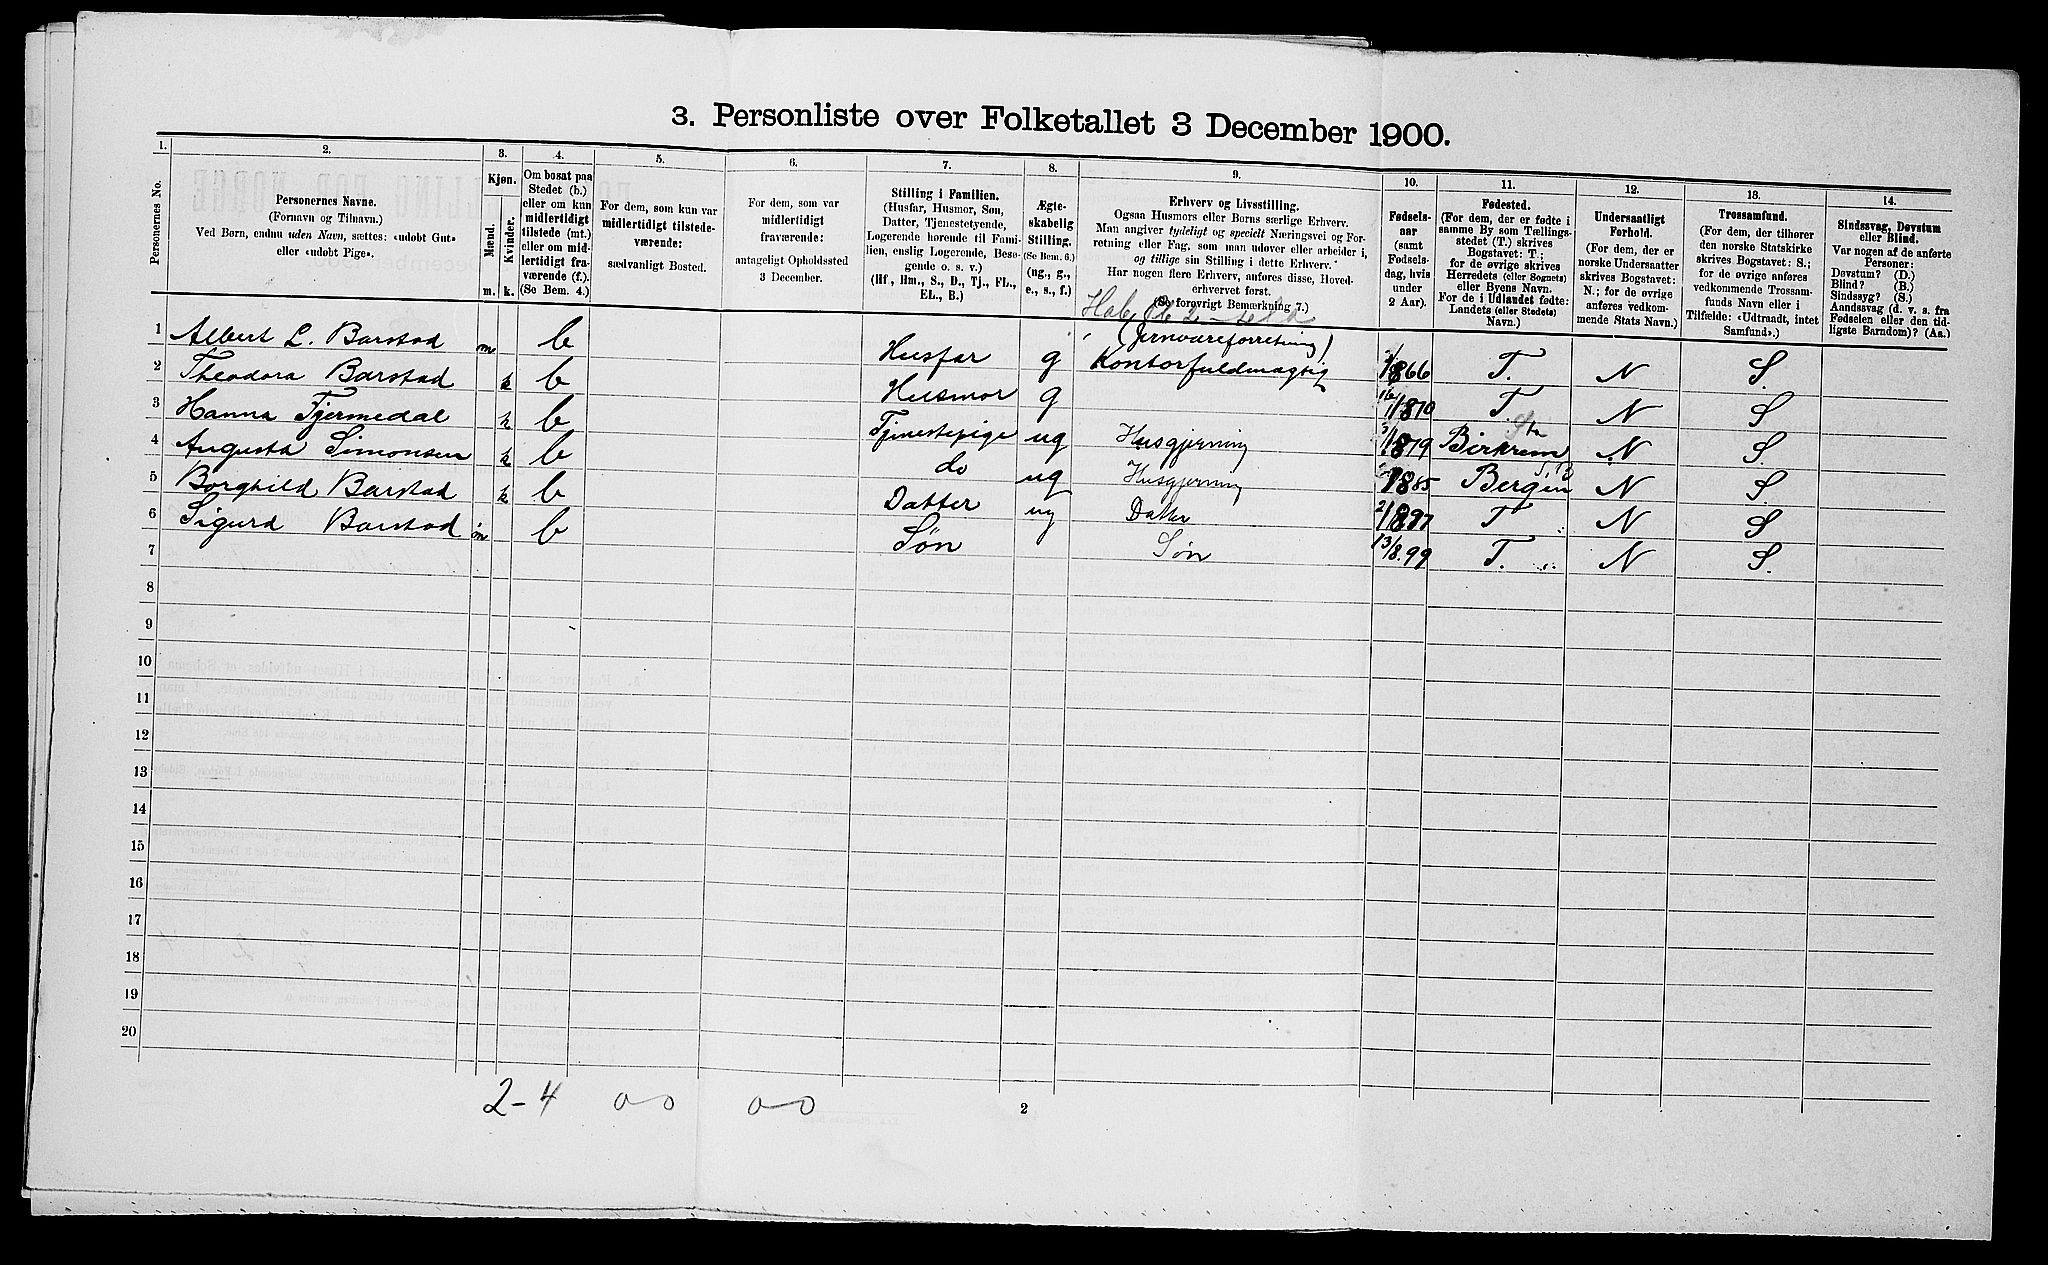 3. Personliste over Folketallet 3 December 1900.
1. 2. 3. 4. 5. 6. 7. 8. 9. 10. 11. 12. 13. 14.
Personernes No.
Personernes Navne.
(Fornavn og Tilnavn.)
Ved Børn, endnu uden Navn, sættes: «udøbt Gut»
eller «udøbt Pige».
Kjøn.
Mænd.
Kvinder.
m. k.
Om bosat paa
Stedet (b.)
eller om kun
midlertidigt
tilstede (mt.)
eller om mid-
lertidigt fra-
værende (f.).
(Se Bem. 4.)
For dem, som kun var
midlertidigt tilstede-
værende:
sædvanligt Bosted.
For dem, som var
midlertidigt
fraværende:
antageligt Opholdssted
3 December.
Stilling i Familien.
(Husfar, Husmor, Søn,
Datter, Tjenestetyende,
Logerende hørende til Fami-
lien, enslig Logerende, Besø-
gende o. s. v.)
(Hf., Hm., S., D., Tj., FL.,
EL., B.)
Ægte-
skabelig
Stilling.
(Se Bem. 6.)
(ug., g.,
e., s., f.)
Erhverv og Livsstilling.
Ogsaa Husmors eller Børns særlige Erhverv.
Man angiver tydeligt og specielt Næringsvei og For-
retning eller Fag, som man udover eller arbeider i,
og tillige sin Stilling i dette Erhverv.
Har nogen flere Erhverv, anføres disse, Hoved-
erhvervet først.
(Se forøvrigt Bemærkning 7.)
Fødsels-
aar
(samt
Fødsels-
dag, hvis
under
2 Aar).
Fødested.
(For dem, der er fødte i
samme By som Tællings-
stedet (T.) skrives
Bogstavet: T.;
for de øvrige skrives
Herredets (eller Sognets)
eller Byens Navn.
For de i Udlandet fødte:
Landets (eller Stedets)
Navn.)
Undersaatligt
Forhold.
(For dem, der er
norske Undersaatter
skrives Bogstavet:
N.; for de øvrige
anføres vedkom-
mende Stats Navn.)
Trossamfund.
(For dem, der tilhører
den norske Statskirke
skrives Bogstavet: S.;
for de øvrige anføres
vedkommende Trossam-
funds Navn eller i
Tilfælde: «Udtraadt, intet
Samfund».)
Sindssvag, Døvstum
eller Blind.
Var nogen af de anførte
Personer:
Døvstum? (D.)
Blind? (B.)
Sindssyg? (S.)
Aandssvag (d. v. s. fra
Fødselen eller den tid-
ligste Barndom)? (Aa.)
(Jernvareforretning)
1 Albert L. Barstad m b Husfar g Kontorfuldmægtig 1866 T. N S.
2 Theodora Barstad k b Husmor g 1870 T N S
3 Hanna Tjermedal k b Tjenestepige ug Husgjerning 1879 Birkrem N S.
4 Augusta Simonsen k b do ug Husgjerning 1885 Bergen N S.
5 Borghild Barstad k b Datter ug Datter 1897 T N S
6 Sigurd Barstad m b Søn Søn 13/8.99 T. N S.
7
8
9
10
11
12
13
14
15
16
17
18
19
20
2-4 0 0 0 0
2